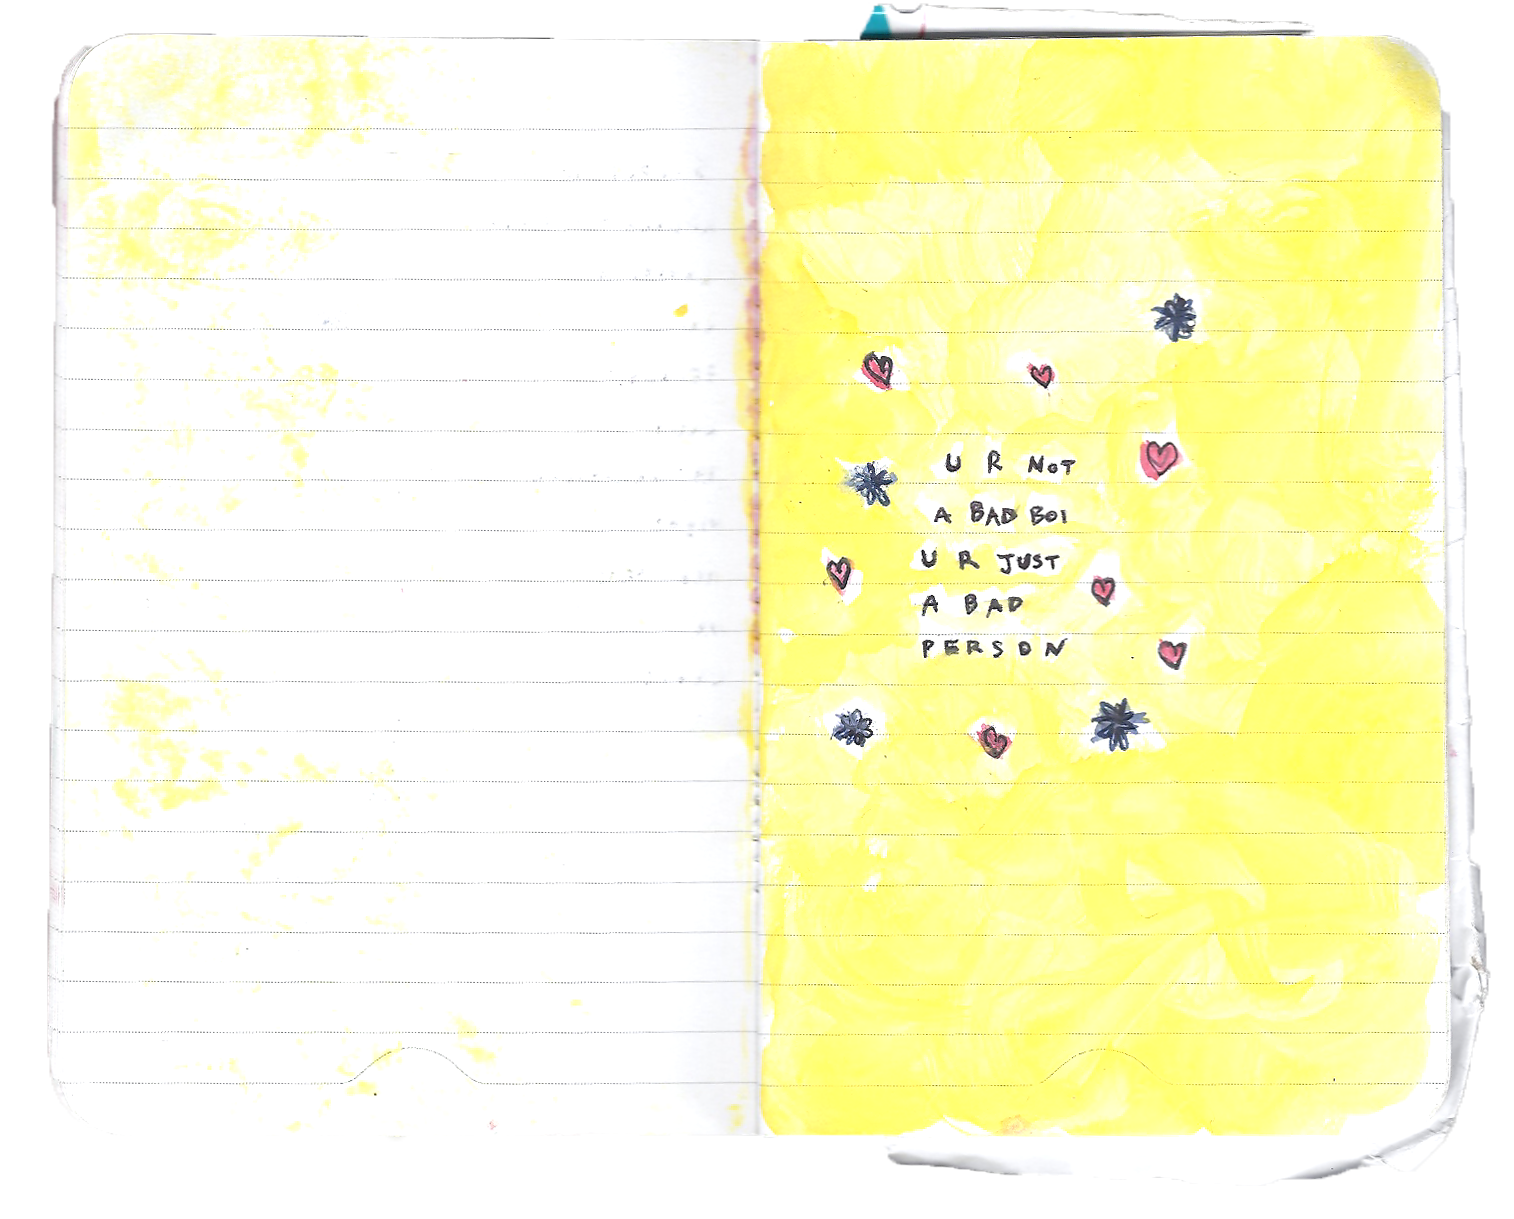 U R NOT
A BAD BOI
U R JUST
A BAD
PERSON